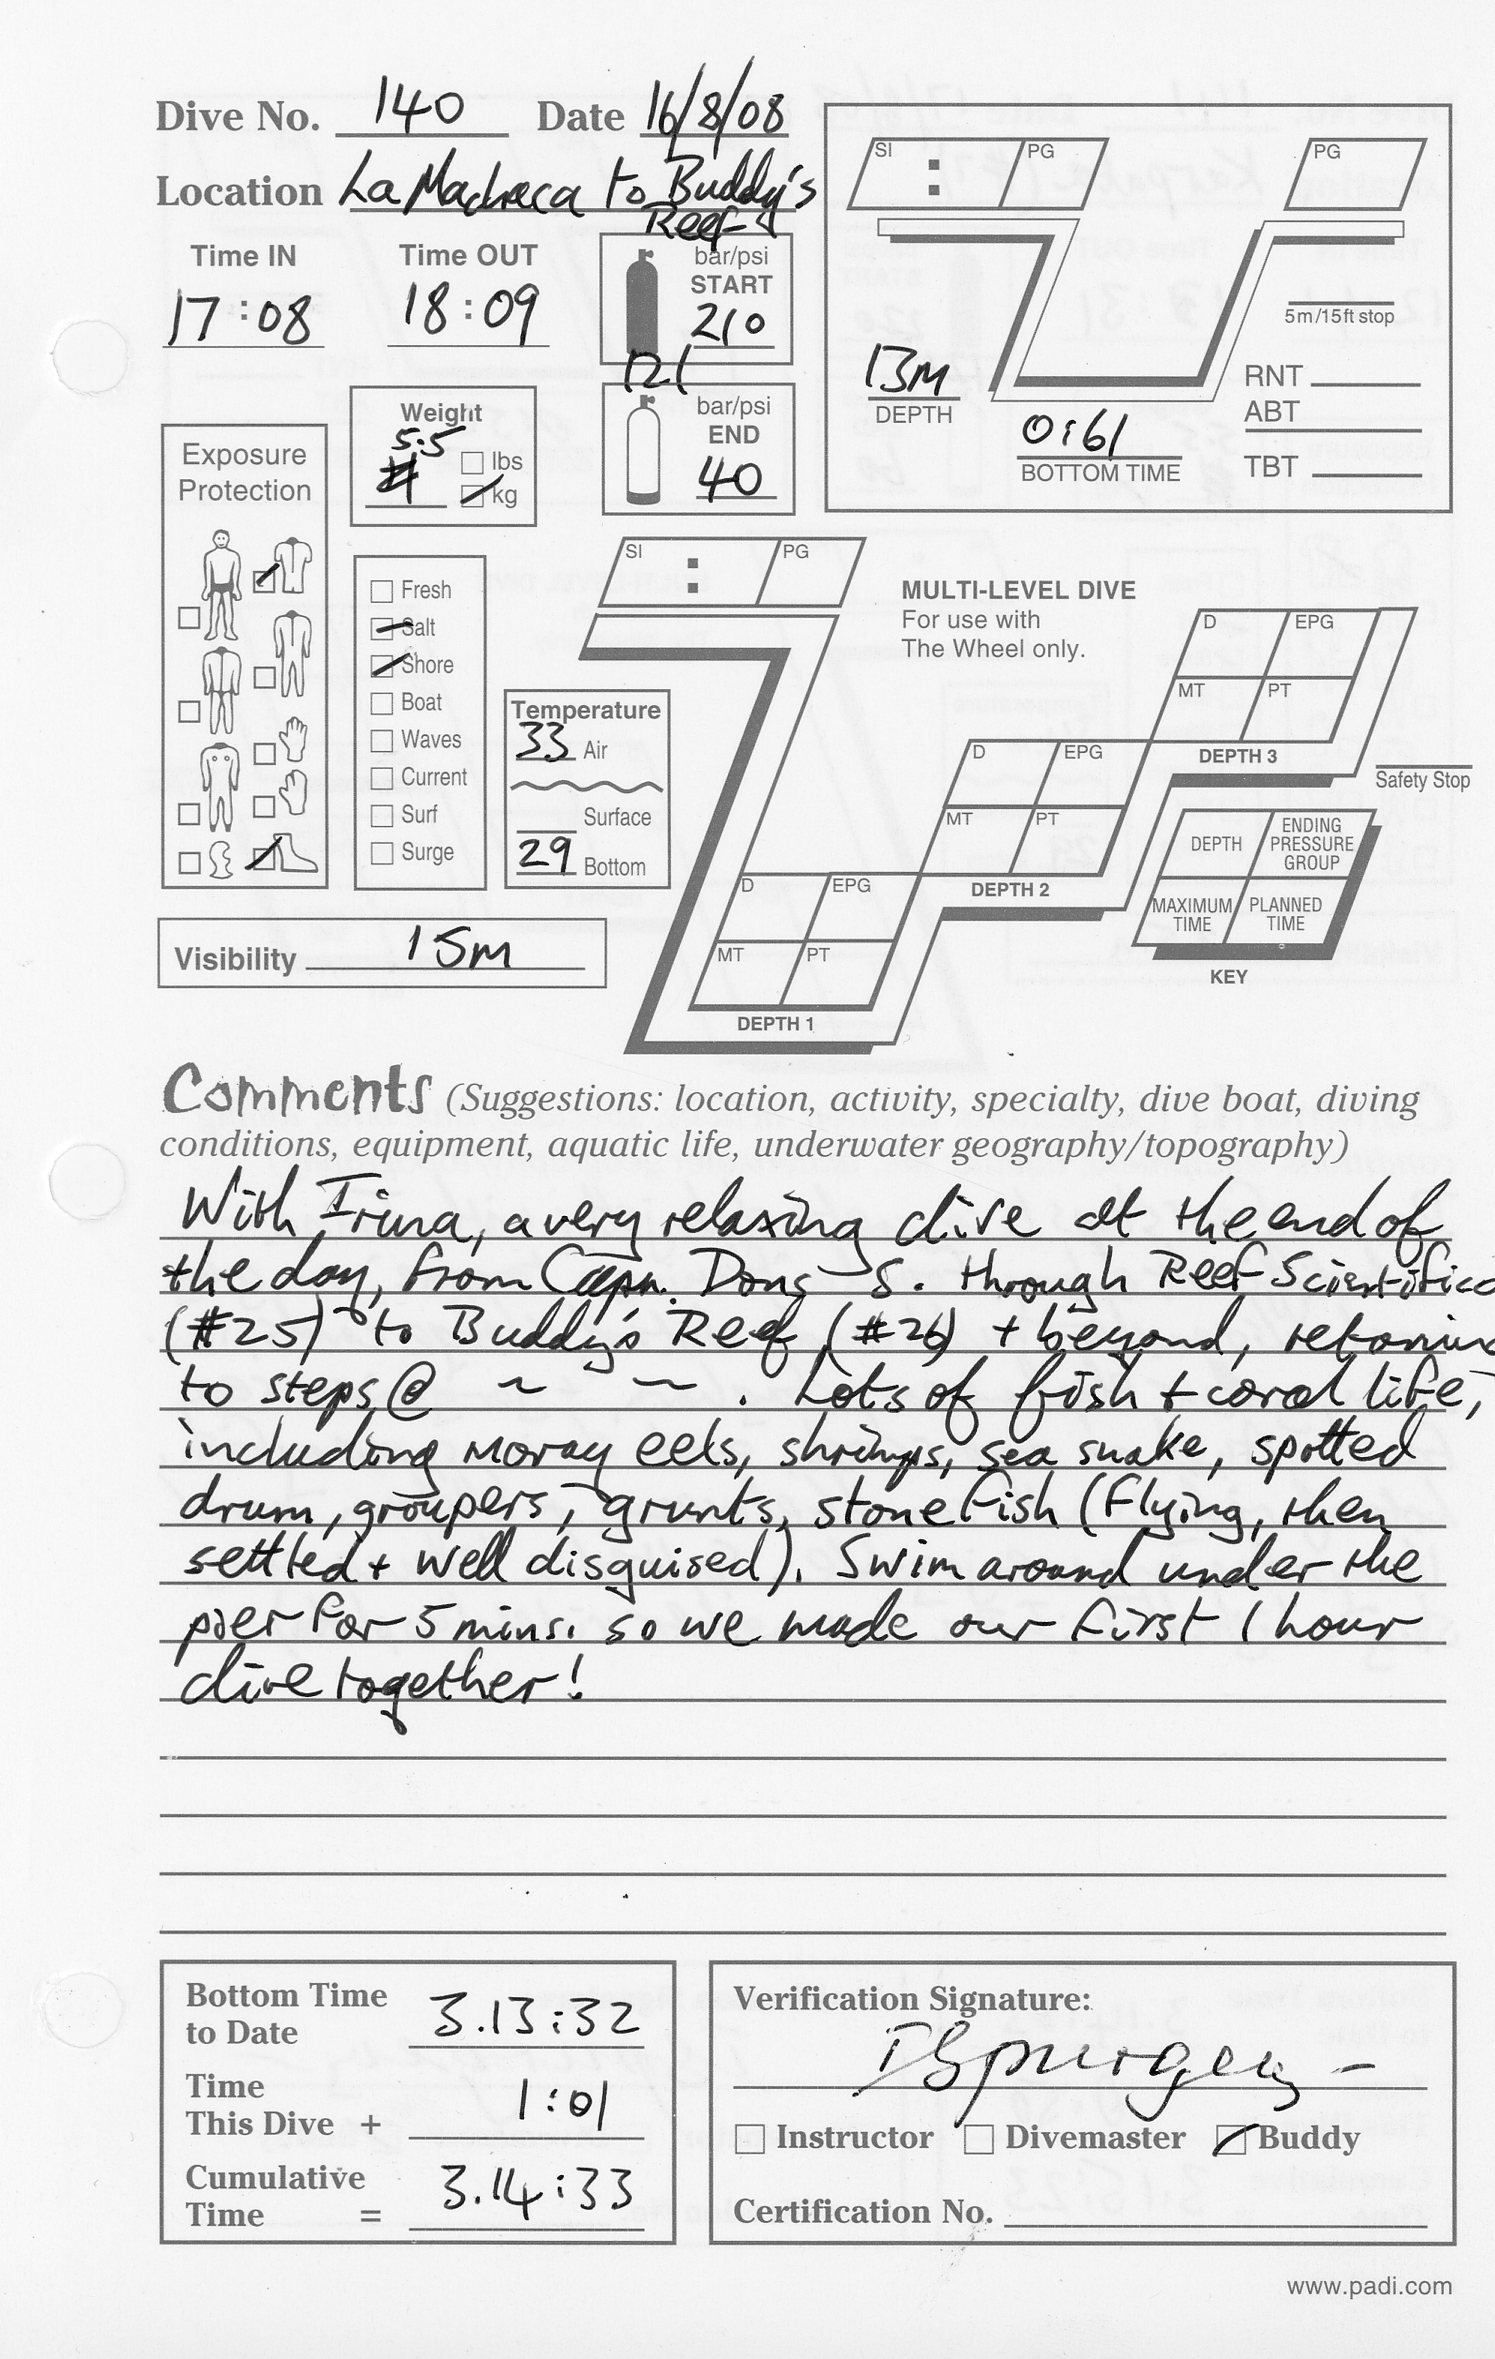 Dive No. 140 Date 16/8/08
Location La Machaca to Buddy's
Reef
Time IN Time OUT
17:08 18:09
bar/psi
START
210
12 l
bar/psi
END
40
Weight
5.5
lbs
kg
Exposure
Protection
Fresh
Salt
Shore
Boat
Waves
Current
Surf
Surge
Temperature
33 Air
Surface
29 Bottom
Visibility 15m
SI : PG PG
5m/15ft stop
13m
DEPTH
0:61
BOTTOM TIME
RNT
ABT
TBT
SI : PG
MULTI-LEVEL DIVE
For use with
The Wheel only.
D EPG
MT PT
DEPTH 3
Safety Stop
D EPG
MT PT
DEPTH 2
D EPG
MT PT
DEPTH 1
DEPTH ENDING PRESSURE GROUP
MAXIMUM TIME PLANNED TIME
KEY
Comments (Suggestions: location, activity, specialty, dive boat, diving
conditions, equipment, aquatic life, underwater geography/topography)
With Irina, a very relaxing dive at the end of
the day, from Capn. Dons S. through Reef Scientifico
(#25) to Buddy's Reef (#26) + beyond,
to steps @ ~ ~ . Lots of fish + coral life,
including moray eels, shrimps, sea snake, spotted
drum, groupers, grunts, stone fish (flying, then
settled + well disguised). Swim around under the
pier for 5 mins. so we made our first 1 hour
dive together!
Bottom Time
to Date 3.13:32
Time
This Dive + 1:01
Cumulative
Time = 3.14:33
Verification Signature:
Instructor Divemaster Buddy
Certification No.
www.padi.com